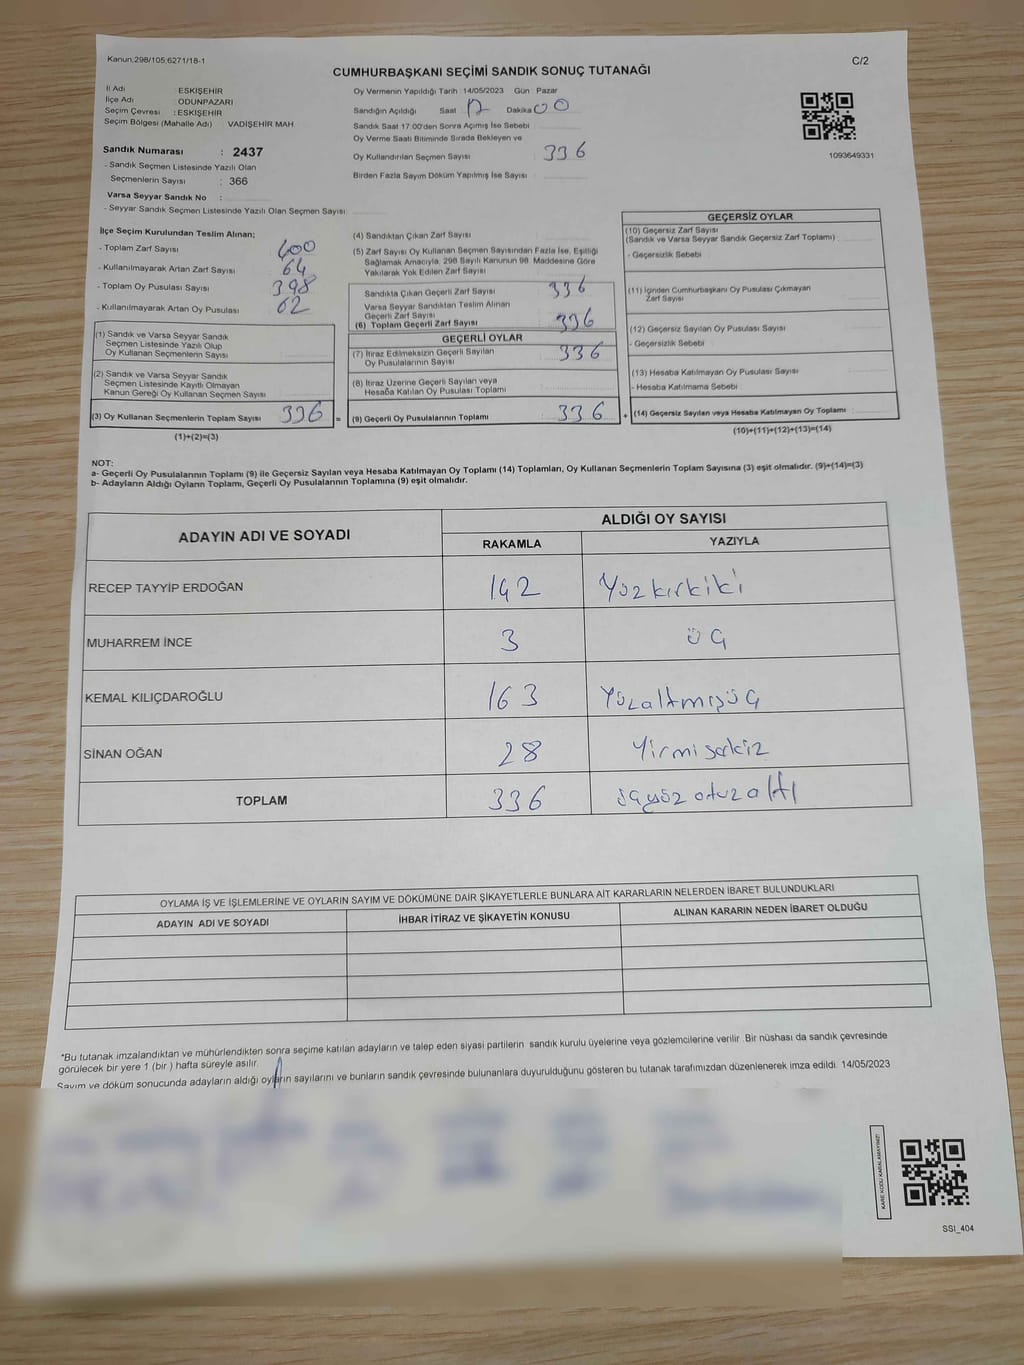 Kanun;298/105;6271/18-1
C/2
CUMHURBAŞKANI SEÇİMİ SANDIK SONUÇ TUTANAĞI
İl Adı : ESKİŞEHİR
İlçe Adı : ODUNPAZARI
Seçim Çevresi : ESKİŞEHİR
Seçim Bölgesi (Mahalle Adı) VADİŞEHİR MAH.
Sandık Numarası : 2437
- Sandık Seçmen Listesinde Yazılı Olan
Seçmenlerin Sayısı : 366
Varsa Seyyar Sandık No :
- Seyyar Sandık Seçmen Listesinde Yazılı Olan Seçmen Sayısı:
Oy Vermenin Yapıldığı Tarih :14/05/2023 Gün : Pazar
Sandığın Açıldığı Saat 17 Dakika 00
Sandık Saat 17:00'den Sonra Açımış İse Sebebi
Oy Verme Saati Bitiminde Sırada Bekleyen ve
Oy Kullandırılan Seçmen Sayısı : 336
Birden Fazla Sayım Döküm Yapılmış İse Sayısı
1093649331
İlçe Seçim Kurulundan Teslim Alınan;
- Toplam Zarf Sayısı : 400
- Kullanılmayarak Artan Zarf Sayısı : 64
- Toplam Oy Pusulası Sayısı : 398
- Kullanılmayarak Artan Oy Pusulası : 62
(1) Sandık ve Varsa Seyyar Sandık
Seçmen Listesinde Yazılı Olup
Oy Kullanan Seçmenlerin Sayısı :
(2) Sandık ve Varsa Seyyar Sandık
Seçmen Listesinde Kayıtlı Olmayan
Kanun Gereği Oy Kullanan Seçmen Sayısı :
(3) Oy Kullanan Seçmenlerin Toplam Sayısı : 336 =
(1)+(2)=(3)
(4) Sandıktan Çıkan Zarf Sayısı :
(5) Zarf Sayısı Oy Kullanan Seçmen Sayısından Fazla İse, Eşitliği
Sağlamak Amacıyla, 298 Sayılı Kanunun 98. Maddesine Göre
Yakılarak Yok Edilen Zarf Sayısı :
Sandıkta Çıkan Geçerli Zarf Sayısı : 336
Varsa Seyyar Sandıktan Teslim Alınan
Geçerli Zarf Sayısı :
(6) Toplam Geçerli Zarf Sayısı : 336
GEÇERLİ OYLAR
(7) İtiraz Edilmeksizin Geçerli Sayılan
Oy Pusulalarının Sayısı : 336
(8) İtiraz Üzerine Geçerli Sayılan veya
Hesaba Katılan Oy Pusulası Toplamı :
(9) Geçerli Oy Pusulalarının Toplamı : 336 +
GEÇERSİZ OYLAR
(10) Geçersiz Zarf Sayısı
(Sandık ve Varsa Seyyar Sandık Geçersiz Zarf Toplamı) :
- Geçersizlik Sebebi :
(11) İçinden Cumhurbaşkanı Oy Pusulası Çıkmayan
Zarf Sayısı :
(12) Geçersiz Sayılan Oy Pusulası Sayısı :
- Geçersizlik Sebebi :
(13) Hesaba Katılmayan Oy Pusulası Sayısı :
- Hesaba Katılmama Sebebi :
(14) Geçersiz Sayılan veya Hesaba Katılmayan Oy Toplamı :
(10)+(11)+(12)+(13)=(14)
NOT:
a- Geçerli Oy Pusulalarının Toplamı (9) ile Geçersiz Sayılan veya Hesaba Katılmayan Oy Toplamı (14) Toplamları, Oy Kullanan Seçmenlerin Toplam Sayısına (3) eşit olmalıdır. (9)+(14)=(3)
b- Adayların Aldığı Oyların Toplamı, Geçerli Oy Pusulalarının Toplamına (9) eşit olmalıdır.
ADAYIN ADI VE SOYADI
ALDIĞI OY SAYISI
RAKAMLA YAZIYLA
RECEP TAYYİP ERDOĞAN 142 Yüzkırkiki
MUHARREM İNCE 3 üç
KEMAL KILIÇDAROĞLU 163 Yüzaltmışüç
SİNAN OĞAN 28 Yirmisekiz
TOPLAM 336 üçyüz otuz altı
OYLAMA İŞ VE İŞLEMLERİNE VE OYLARIN SAYIM VE DÖKÜMÜNE DAİR ŞİKAYETLERLE BUNLARA AİT KARARLARIN NELERDEN İBARET BULUNDUKLARI
ADAYIN ADI VE SOYADI İHBAR İTİRAZ VE ŞİKAYETİN KONUSU ALINAN KARARIN NEDEN İBARET OLDUĞU
*Bu tutanak imzalandıktan ve mühürlendikten sonra seçime katılan adayların ve talep eden siyasi partilerin sandık kurulu üyelerine veya gözlemcilerine verilir. Bir nüshası da sandık çevresinde
görülecek bir yere 1 (bir ) hafta süreyle asılır.
Sayım ve döküm sonucunda adayların aldığı oyların sayılarını ve bunların sandık çevresinde bulunanlara duyurulduğunu gösteren bu tutanak tarafımızdan düzenlenerek imza edildi. 14/05/2023
KARE KODU KARALAMAYINIZ!
SSI_404